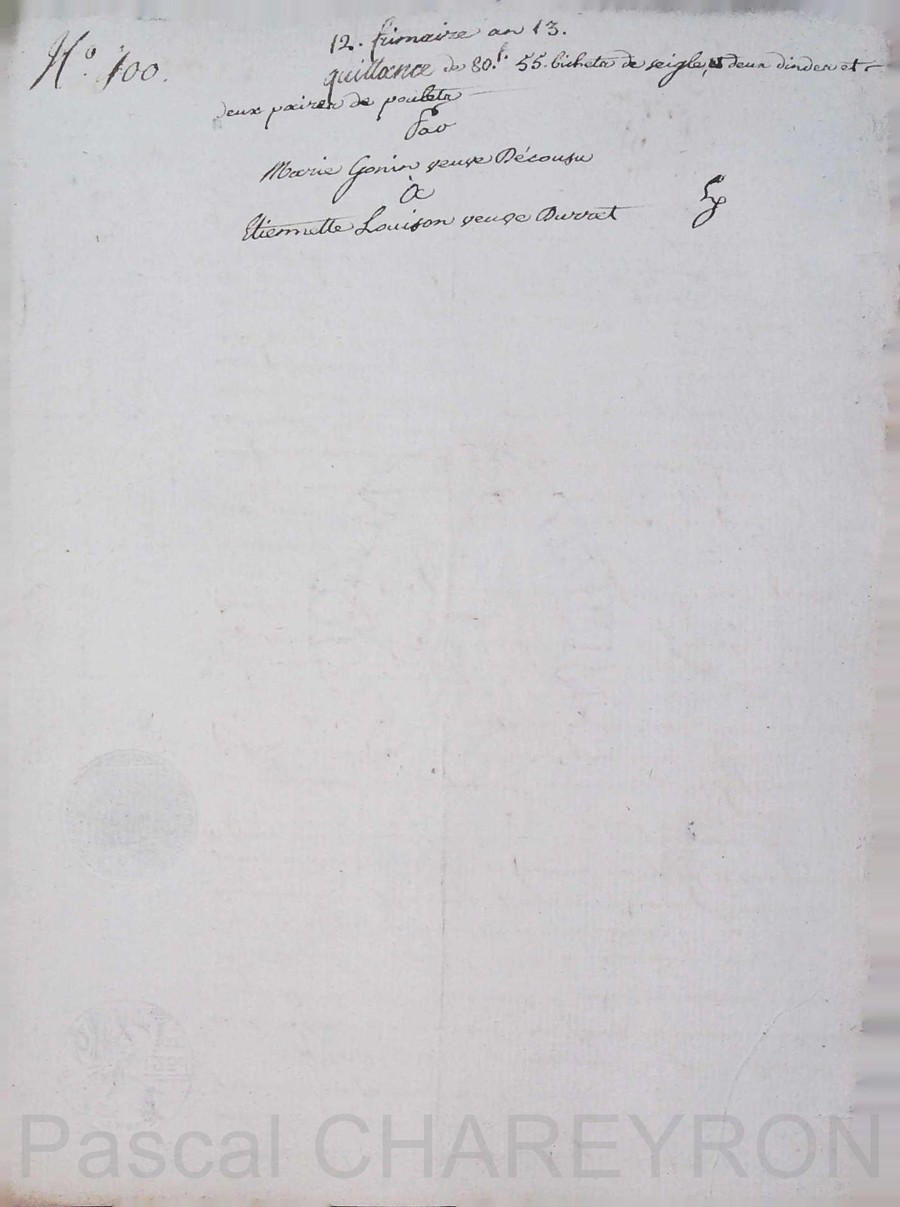 12. frimaire an 13.
N.° 100.
quittance de 80.f 55. bichets de seigle, deux dindes et
deux paires de poulets
Par
Marie Gonin veuve Décousu
À
Etiennette Louison veuve Durret
Pascal CHAREYRON